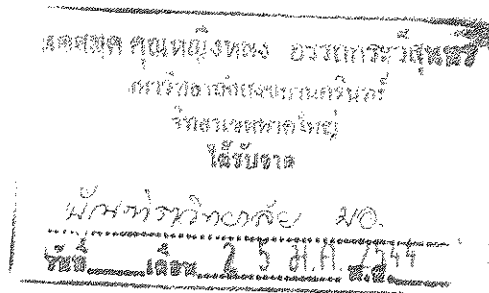 หอสมุด คุณหญิงหลง อรรถกระวีสุนทร
มหาวิทยาลัยสงขลานครินทร์
วิทยาเขตหาดใหญ่
ได้รับจาก
บัณฑิตวิทยาลัย มอ.
วันที่ เดือน 2 5 ม.ค. 2544 พ.ศ.